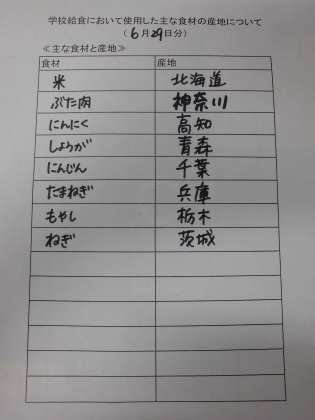 学校給食において使用した主な食材の産地について
(6月29日分)
≪主な食材と産地≫
食材 産地
米 北海道
ぶた肉 神奈川
にんにく 高知
しょうが 青森
にんじん 千葉
たまねぎ 兵庫
もやし 栃木
ねぎ 茨城